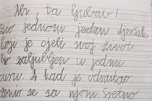 Ah, ta ljubav!
Bio jednom jedan dječak
koji je cijeli svoj život
bio zaljubljen u jednu
A kad je odrastao
se sa njom sretno